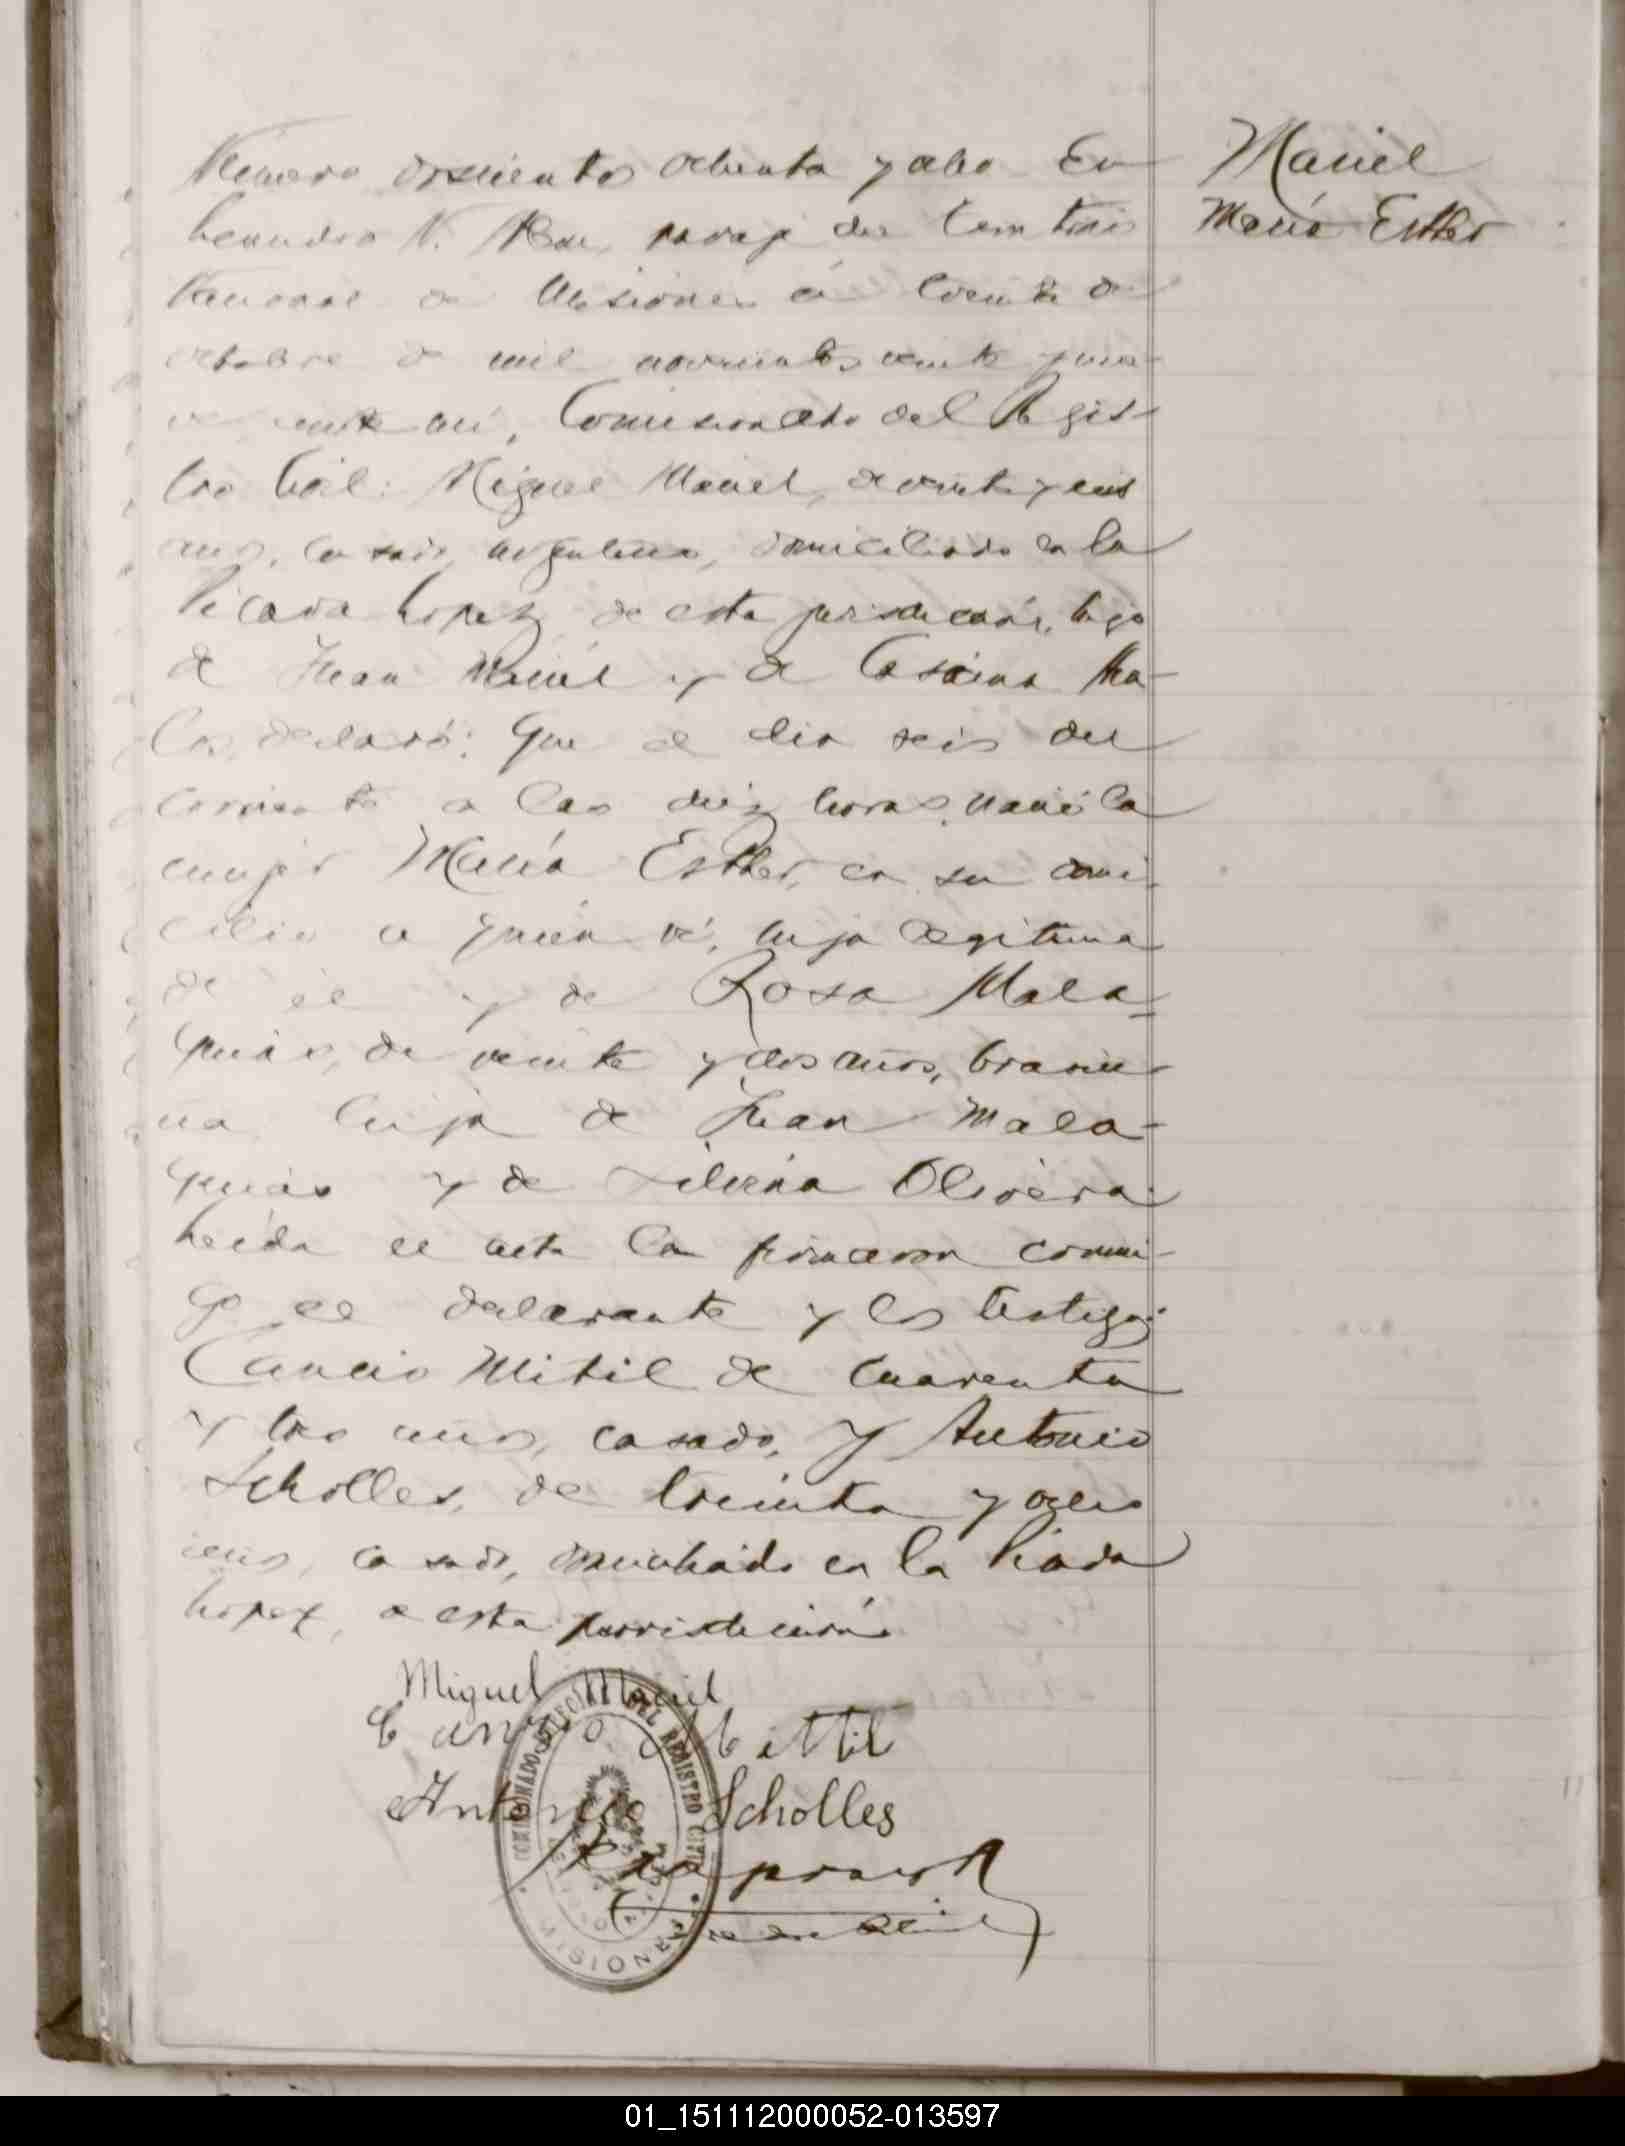 Maciel
María Esther
Número doscientos ochenta y ocho En
Leandro N. Alem, paraje del Territorio
Nacional de Misiones á treinta de
octubre de mil novecientos veinte y nue-
ve, ante mí, Comisionado del Regis-
tro Civil: Miguel Maciel, de veinte y seis
años, casado, argentino, domiciliado en la
Picada Lopez de esta jurisdicción, hijo
de Juan Maciel y de Casima
declaró: Que el dia seis del
corriente a las diez horas, nació la
mujer María Esther, en su domi-
cilio a quien ví, hija legitima
de él y de Rosa Mala-
quias, de veinte y dos años, brasile-
ña hija de Juan Mala-
quias y de Silveria Olivera.
Leída el acta la firmaron conmi-
go el declarante y los testigos
Cancio Mitil de cuarenta
y tres años, casado, y Antonio
Scholles, de treinta y ocho
años, casado, domiciliado en la Picada
Lopez, de esta jurisdicción
Miguel Maciel
Cancio Mittil
Antonio Scholles
COMISIONADO ESPECIAL DEL REGISTRO CIVIL
MISIONES
01_151112000052-013597